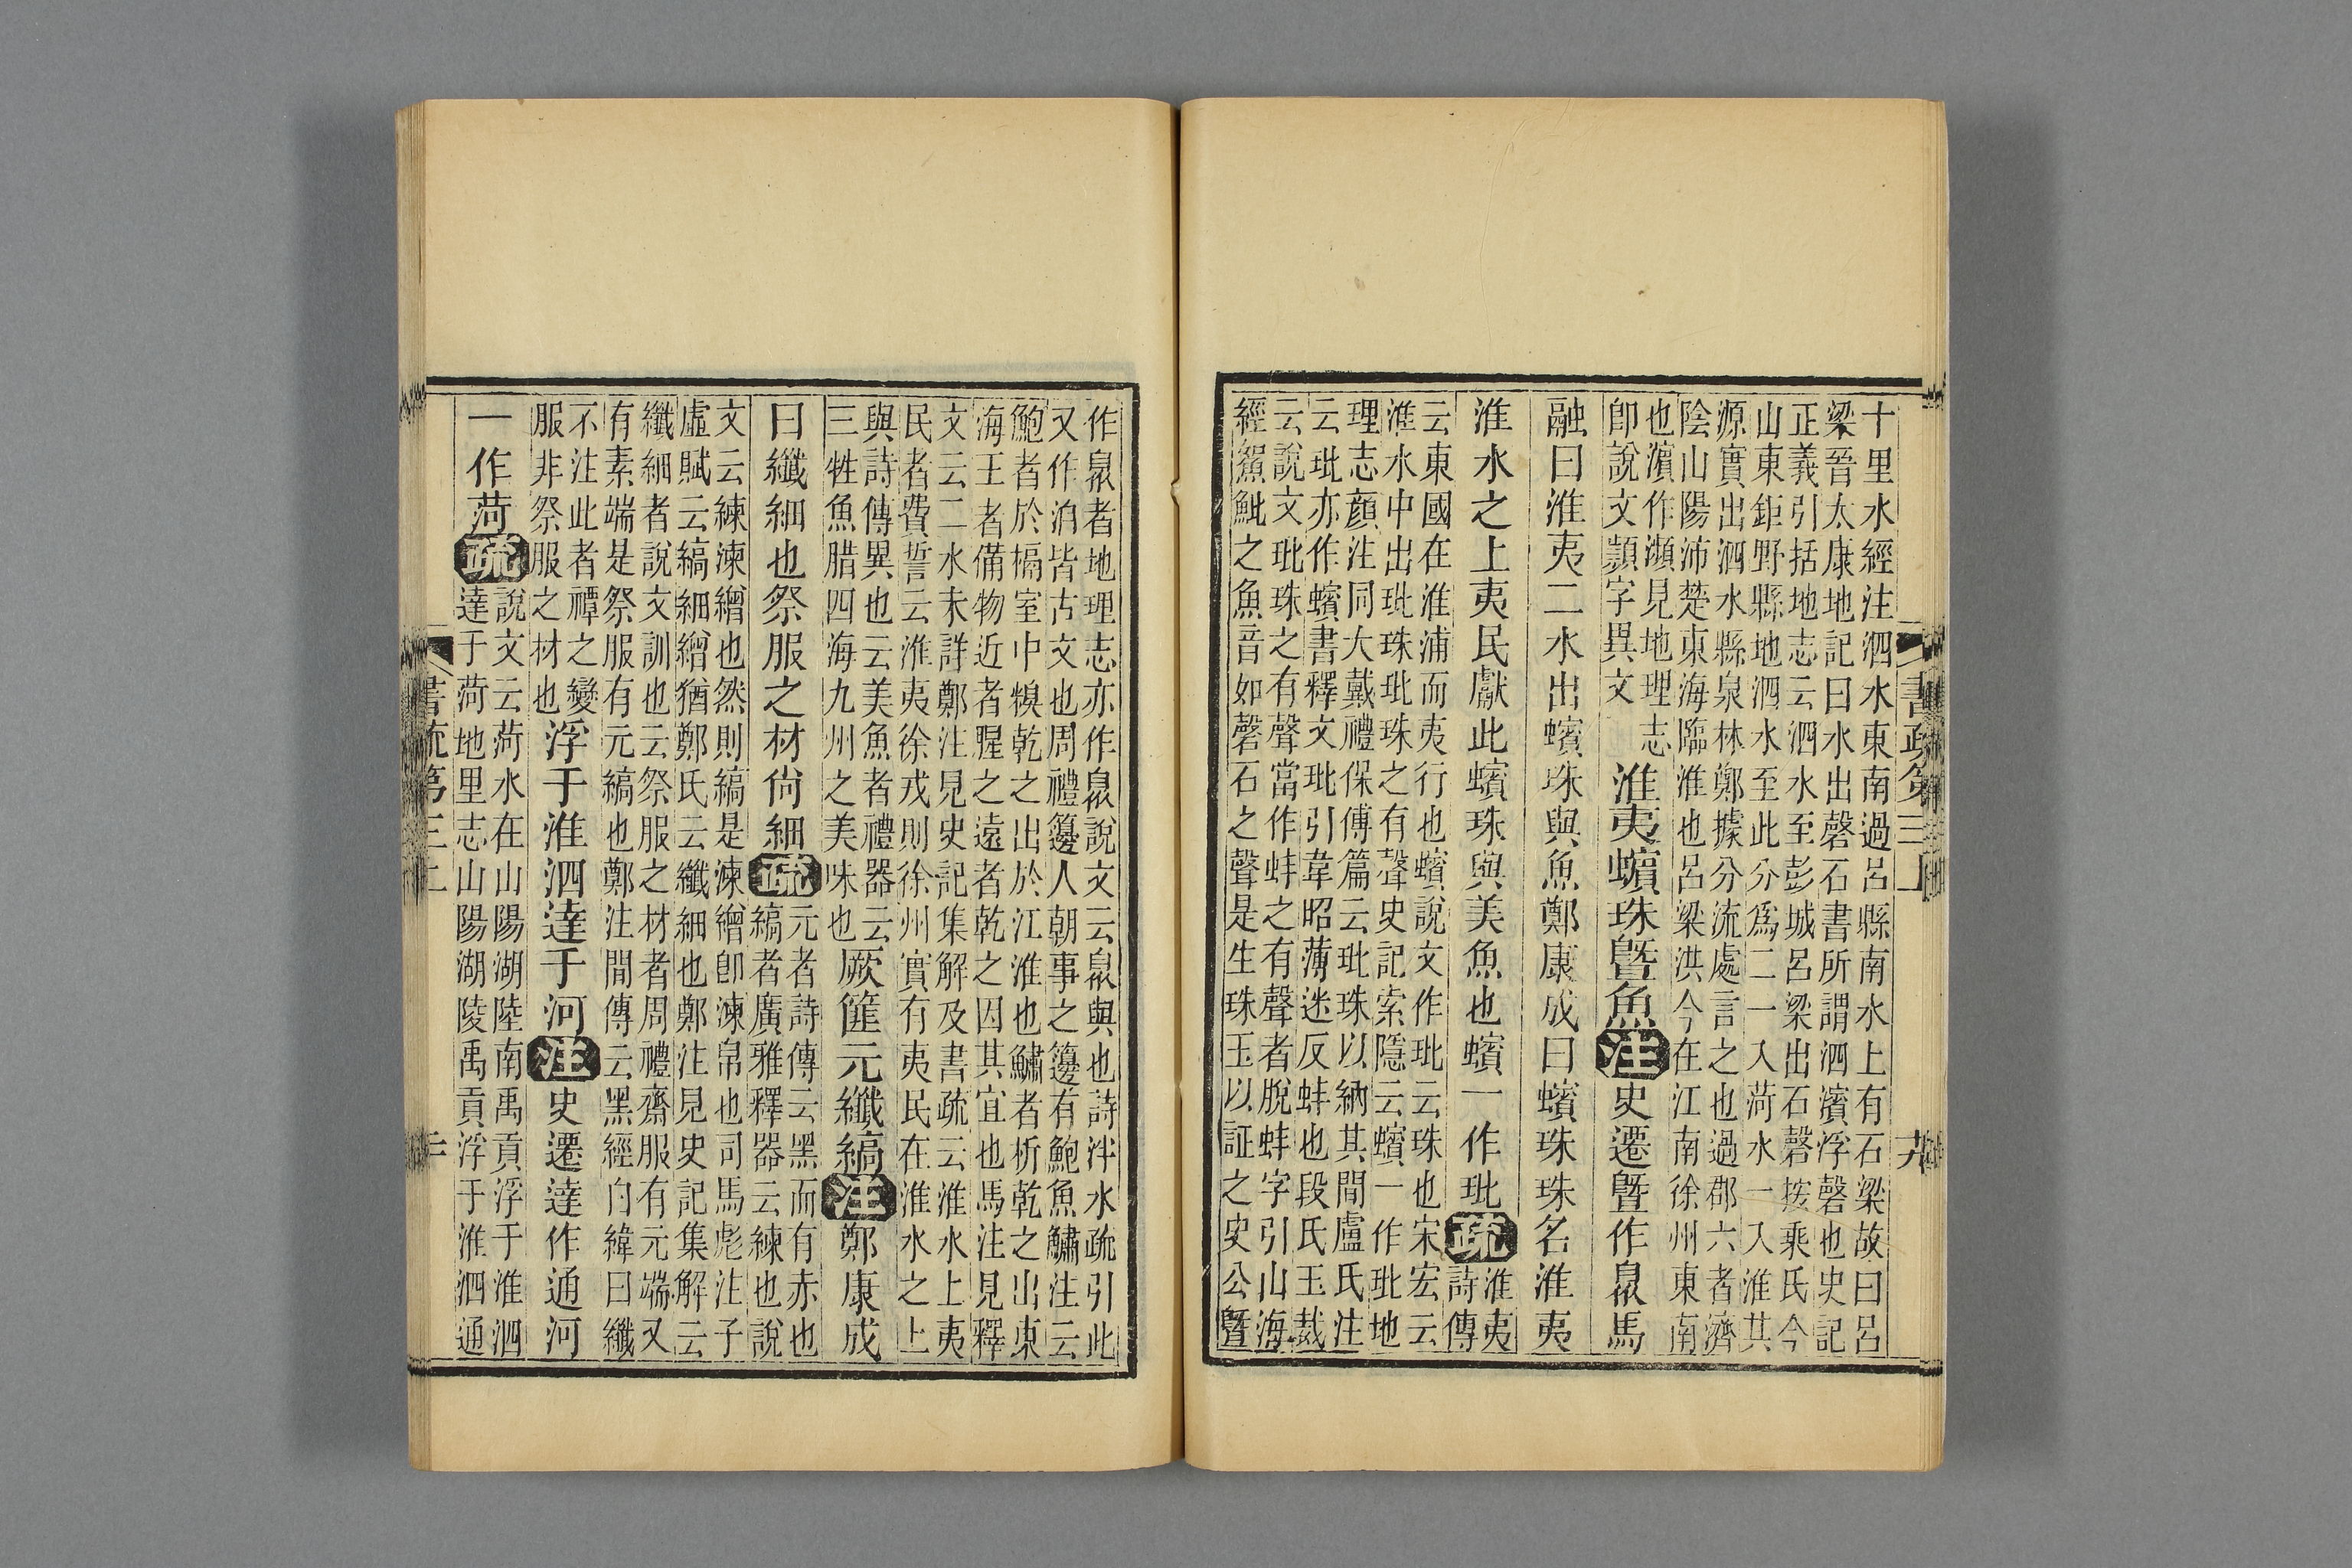 書疏第三上
十里水經注泗水東南過呂縣南水上有石梁故曰呂
梁晉太康地記曰水出磬石書所謂泗濱浮磬也史記
正義引括地志云泗水至彭城呂梁出石磬按乘氏今
山東鉅野縣地泗水至此分爲二一入菏水一入淮其
源實出泗水縣泉林鄭據分流處言之也過郡六者濟
陰山陽沛楚東海臨淮也呂梁洪今在江南徐州東南
也濵作瀕見地理志
卽說文顥字異文
淮夷蠙珠曁魚注史遷曁作臮馬
融曰淮夷二水出蠙珠與魚鄭康成曰蠙珠珠名淮夷
淮水之上夷民獻此蠙珠與美魚也蠙一作玭疏
淮夷
詩傳
云東國在淮浦而夷行也蠙說文作玭云珠也宋宏云
淮水中出玭珠玭珠之有聲史記索隱云蠙一作玭地
理志顏注同大戴禮保傅篇云玭珠以納其間盧氏注
云玭亦作蠙書釋文玭引韋昭薄迷反蚌也段氏玉裁
云說文玭珠之有聲當作蚌之有聲者脫蚌字引山海
經鴽魮之魚音如磬石之聲是生珠玉以証之史公曁
作臮者地理志亦作臮說文云臮與也詩泮水疏引此
又作洎皆古文也周禮籩人朝事之籩有鮑魚鱐注云
鮑者於楅室中糗乾之出於江淮也鱐者析乾之出東
海王者備物近者腥之遠者乾之因其宜也馬注見釋
文云二水未詳鄭注見史記集解及書疏云淮水上夷
民者費誓云淮夷徐戎則徐州實有夷民在淮水之上
與詩傳異也云美魚者禮器云
三牲魚腊四海九州之美味也
厥篚元纖縞注鄭康成
曰纖細也祭服之材尙細疏
元者詩傳云黑而有赤也
縞者廣雅釋器云練也說
文云練湅繒也然則縞是湅繒卽湅帛也司馬彪注子
虛賦云縞細繒猶鄭氏云纖細也鄭注見史記集解云
纖細者說文訓也云祭服之材者周禮齋服有元端又
有素端是祭服有元縞也鄭注閒傳云黑經白緯曰纖
不注此者禫之變
服非祭服之材也
浮于淮泗達于河注史遷達作通河
一作菏疏
說文云菏水在山陽湖陸南禹貢浮于淮泗
達于菏地里志山陽湖陵禹貢浮于淮泗通
書疏第三上